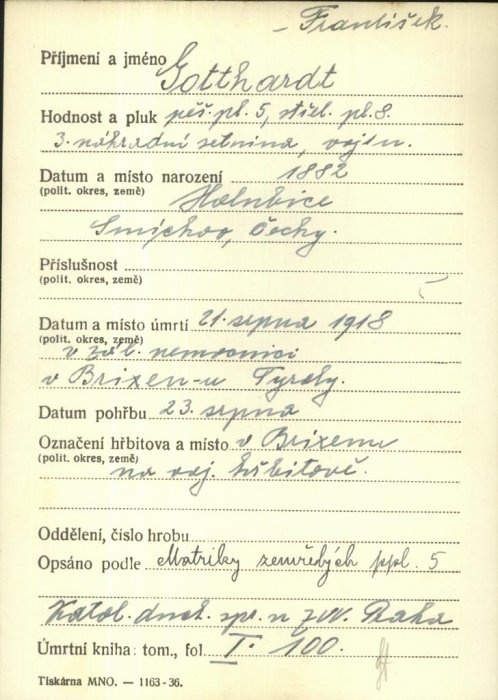 - František.
Příjmení a jméno Gotthardt
Hodnost a pluk pěš. pl. 5, střel. pl. 8.
3. náhradní setnina, vojín.
Datum a místo narození 1882
(polit. okres, země) Holubice
Smíchov, Čechy.
Příslušnost
(polit. okres, země)
Datum a místo úmrtí 21. srpna 1918
(polit. okres, země)
v zál. nemocnici
v Brixen-u Tyroly.
Datum pohřbu 23. srpna
Označení hřbitova a místo v Brixenu
(polit. okres, země)
na voj. hřbitově.
Oddělení, číslo hrobu
Opsáno podle Matriky zemřelých ppl. 5
Katol. duch. spr. n ZVV. Praha
Úmrtní kniha: tom., fol. I. 100.
Tiskárna MNO. — 1163-36.